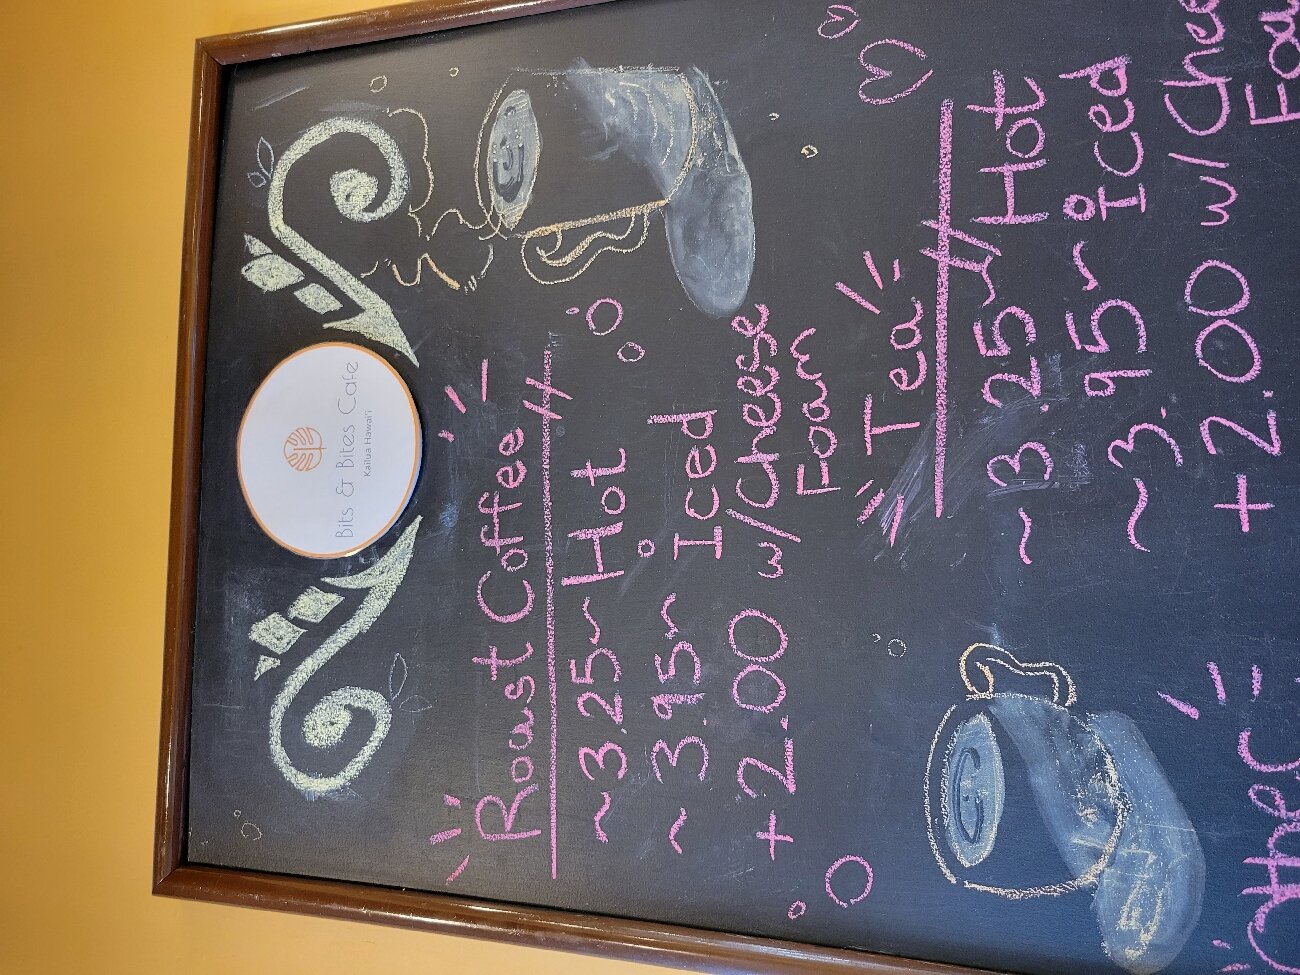 Bits & Bites Cafe
Kailua Hawai'i
Roast Coffee
~3.25~ Hot
~3.95~ Iced
+2.00 w/ Cheese
Foam
Tea
~3.25~ Hot
~3.95~ Iced
+2.00 w/ Chees
Foa
Other